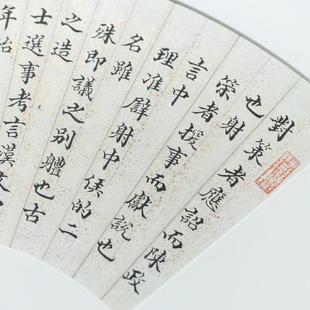 對策者應詔而陳政
也射
策者探事而獻說也
言中
理准譬射中侯的二
名雖
殊即議之別體也古
之造
士選事考言漢文
年始